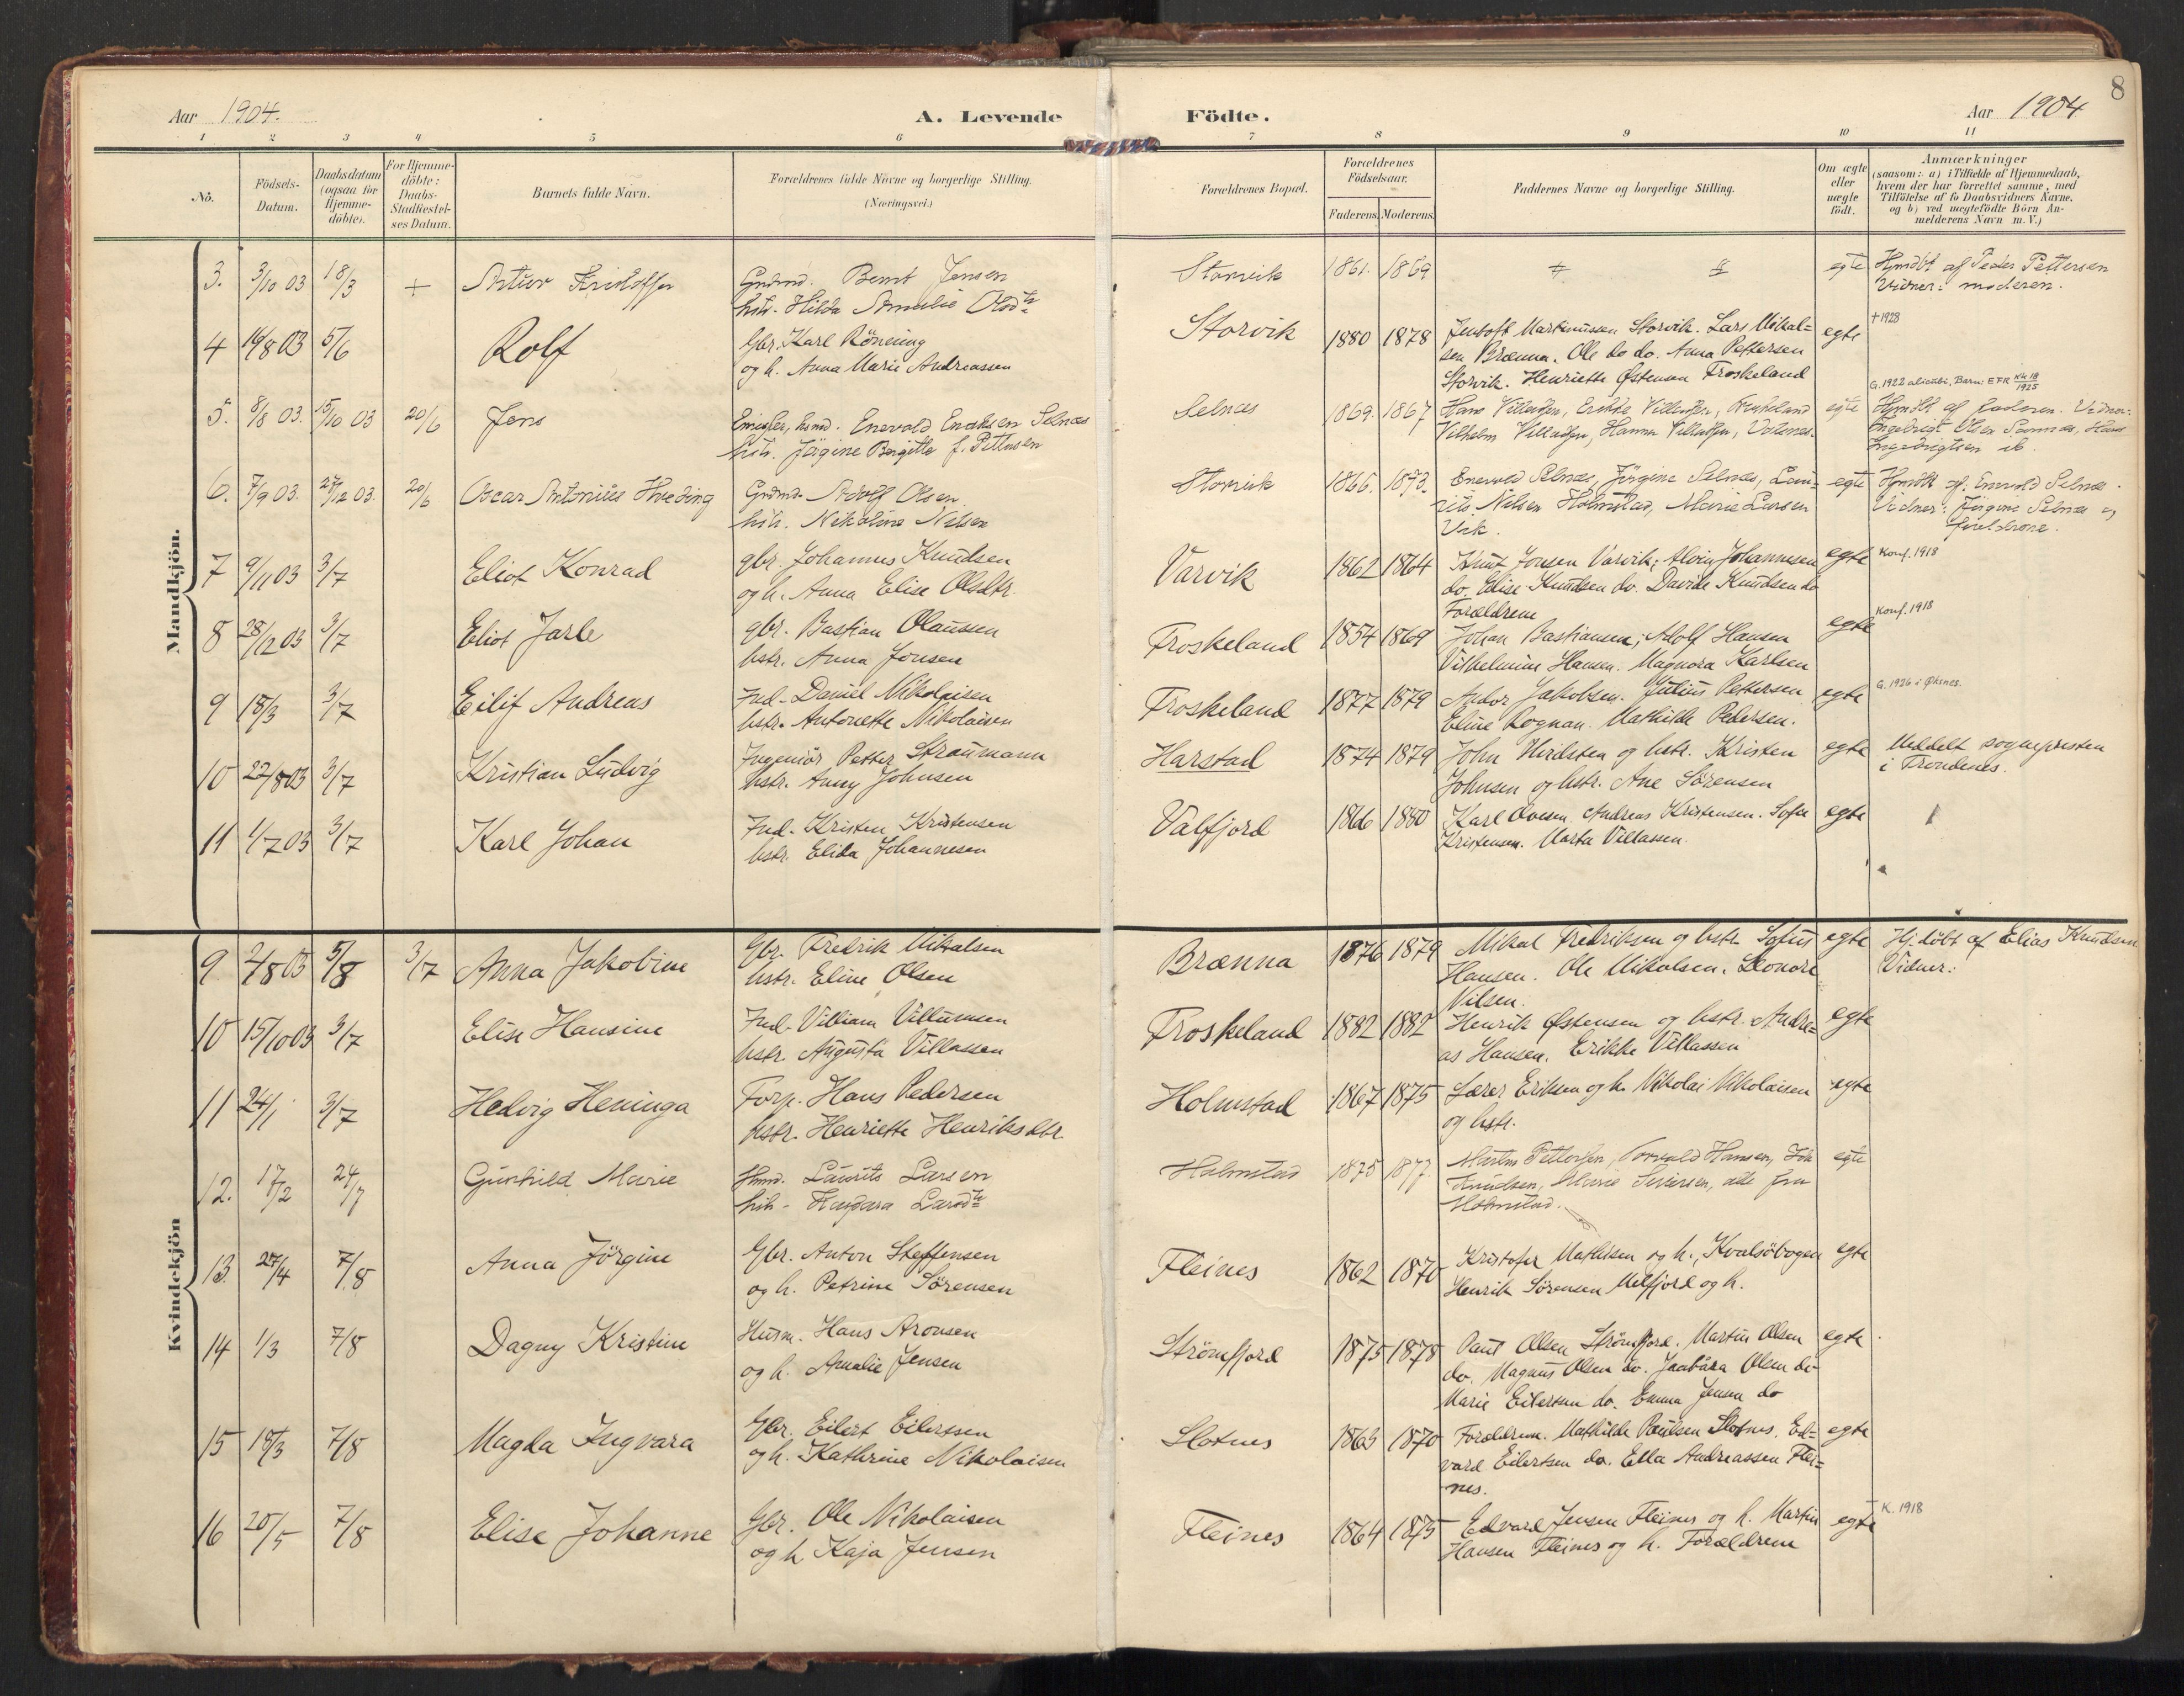 8
Aar 1904. A. Levende Födte. Aar 1904
1 2 3 4 5 6 7 8 9 10 11
No. Födsels-Datum. Daabsdatum (ogsaa for Hjemme-döbte). For Hjemme-döbte: Daabs-Stadfæstel-ses Datum. Barnets fulde Navn. Forældrenes fulde Navne og borgerlige Stilling. (Næringsvei.) Forældrenes Bopæl. Forældrenes Födselsaar. Faderens. Moderens. Faddernes Navne og borgerlige Stilling. Om ægte eller uægte födt. Anmærkninger (saasom: a) i Tilfælde af Hjemmedaab, hvem der har forrettet samme, med Tilföielse af to Daabsvidners Navne, og b) ved uægtefödte Börn Anmelderens Navn m. V.)
Mandkjön.
3. 3/10 03 18/3 + Artur Gmd. Bernt Jensen Storvik 1861. 1869 egte Hjmdbt af Peder Pettersen
hstr. Hilda Amalie Olsdtr Vidner: moderen.
4 14/8 03 5/6 Rolf Gbr. Karl Rönning Storvik 1880 1878 Jentoft Martinussen Storvik. Lars Mikal= egte † 1928
og h. Anna Marie Andreassen sen Brænna. Ole do do. Anna Pettersen
Storvik. Henriette Østensen Froskeland
G. 1922 Barn: EFR 1925
5. 8/8 03. 15/10 03 20/6 Jens Enevold Enoksen Selnæs Selnæs 1869. 1867 Hans egte Hjmdbt af faderen. Vidner:
hstr. Jörgine Bergitte f. Pettersen Vilhelm Hanna
Ingebrigtsen ib.
6. 7/9 03. 27/12 03. 20/6 Oscar Antonius Hveding Gmd. Adolf Olsen Storvik 1866. 1873. Enevold Selnæs, Jörgine Selnæs, Lau= egte Hjmdbt af Enevold Selnæs.
hstr. Nikoline Nilsen rits Nilsen Holmstad, Marie Larsen Vidner: Jörgine Selnæs og
Vik. forældrene.
7 9/11 03 3/7 Eliot Konrad gbr. Johannes Knudsen Varvik 1862 1864 Knut Jonsen Varvik, Alvin Johannesen egte Konf. 1918
og h. Anna Elise Olsdtr. do. Elise Knudsen do. Davide Knudsen do
Forældrene
8 28/12 03 3/7 Eliot Jarle gbr. Bastian Olaussen Froskeland 1854 1869 Johan Bastiansen, Adolf Hansen egte Konf. 1918
hstr. Anna Jonsen Vilhelmine Hansen. Magnora Karlsen
9 18/3 3/7 Eilif Andreas Ind. Daniel Nikolaisen Froskeland 1877 1879 Andor Jakobsen. Julius Pettersen egte G. 1926 i Øksnes.
hstr. Antonette Nikolaisen Eline Rognan. Mathilde Pedersen.
10 27/8 03 3/7 Kristian Ludvig Ingeniör Petter Straumann Harstad 1874 1879 John og hstr. Kristen egte Meddelt sognepresten
hstr. Anny Johnsen Johnsen og hstr. Ane Sörensen i Trondenes.
11 1/7 03 3/7 Karl Johan Ind. Kristen Kristensen Valfjord 1866 1880 Karl Ovesen Andreas Kristensen. Sofie egte
hstr. Elida Johannesen Kristensen. Marta Villassen.
Kvindekjön
9 2/8 03 5/8 3/7 Anna Jakobine Gbr. Fredrik Mikalsen Brænna 1876 1879 Mikal Fredriksen og hstr. Sofus egte Hj.döbt af Elias Knudsen
hstr. Eline Olsen Hansen. Ole Mikalsen. Leonore Vidner:
Nilsen.
10 15/10 03 3/7 Elise Hansine Ind. Villiam Villumsen Froskeland 1882 1882 Henrik Østensen og hstr. Andre= egte
hstr. Augusta Villassen as Hansen. Erikke Villassen
11 24/1 3/7 Hedvig Heninga Forp. Hans Pedersen Holmstad 1867 1875 Lærer Eriksen og h. Nikolai Nikolaisen egte
hstr. Henriette Henriksdtr. og hstr.
12. 17/2 24/7 Gunhild Marie Hmd. Laurits Larsen Holmstad 1875 1877. Martin Pettersen, Torvald Hansen, egte
hstr. Larsdtr Knudsen, Marie Sivertsen, alle fra
Holmstad.
13. 27/4 7/8 Anna Jörgine Gbr. Anton Steffensen Fleines 1862 1870 Kristofer Mathisen og h., Kvalsöbogen egte
og h. Petrine Sörensen Henrik Sörensen Melfjord og h.
14 1/3 7/8 Dagny Kristine Husm. Hans Aronsen Strömfjord 1875 1878 Paul Olsen Strömfjord. Martin Olsen egte.
og h. Amalie Jensen do. Magnus Olsen do. Olsen do
Marie Eilertsen do. Emma Jensen do
15 18/3 7/8 Magda Ingvara Gbr. Eilert Eilertsen Slotnes 1863 1870 Forældrene. Mathilde Paulsen Slotnes. Ed= egte
og h. Kathrine Nikolaisen vard Eilertsen do. Ella Andreassen Flei=
nes.
16 20/5 7/8 Elise Johanne Gbr. Ole Nikolaisen Fleines 1864 1875 Edvard Jensen Fleines og h. Martin egte K. 1918
og h Kaja Jensen Hansen Fleines og h. Forældrene